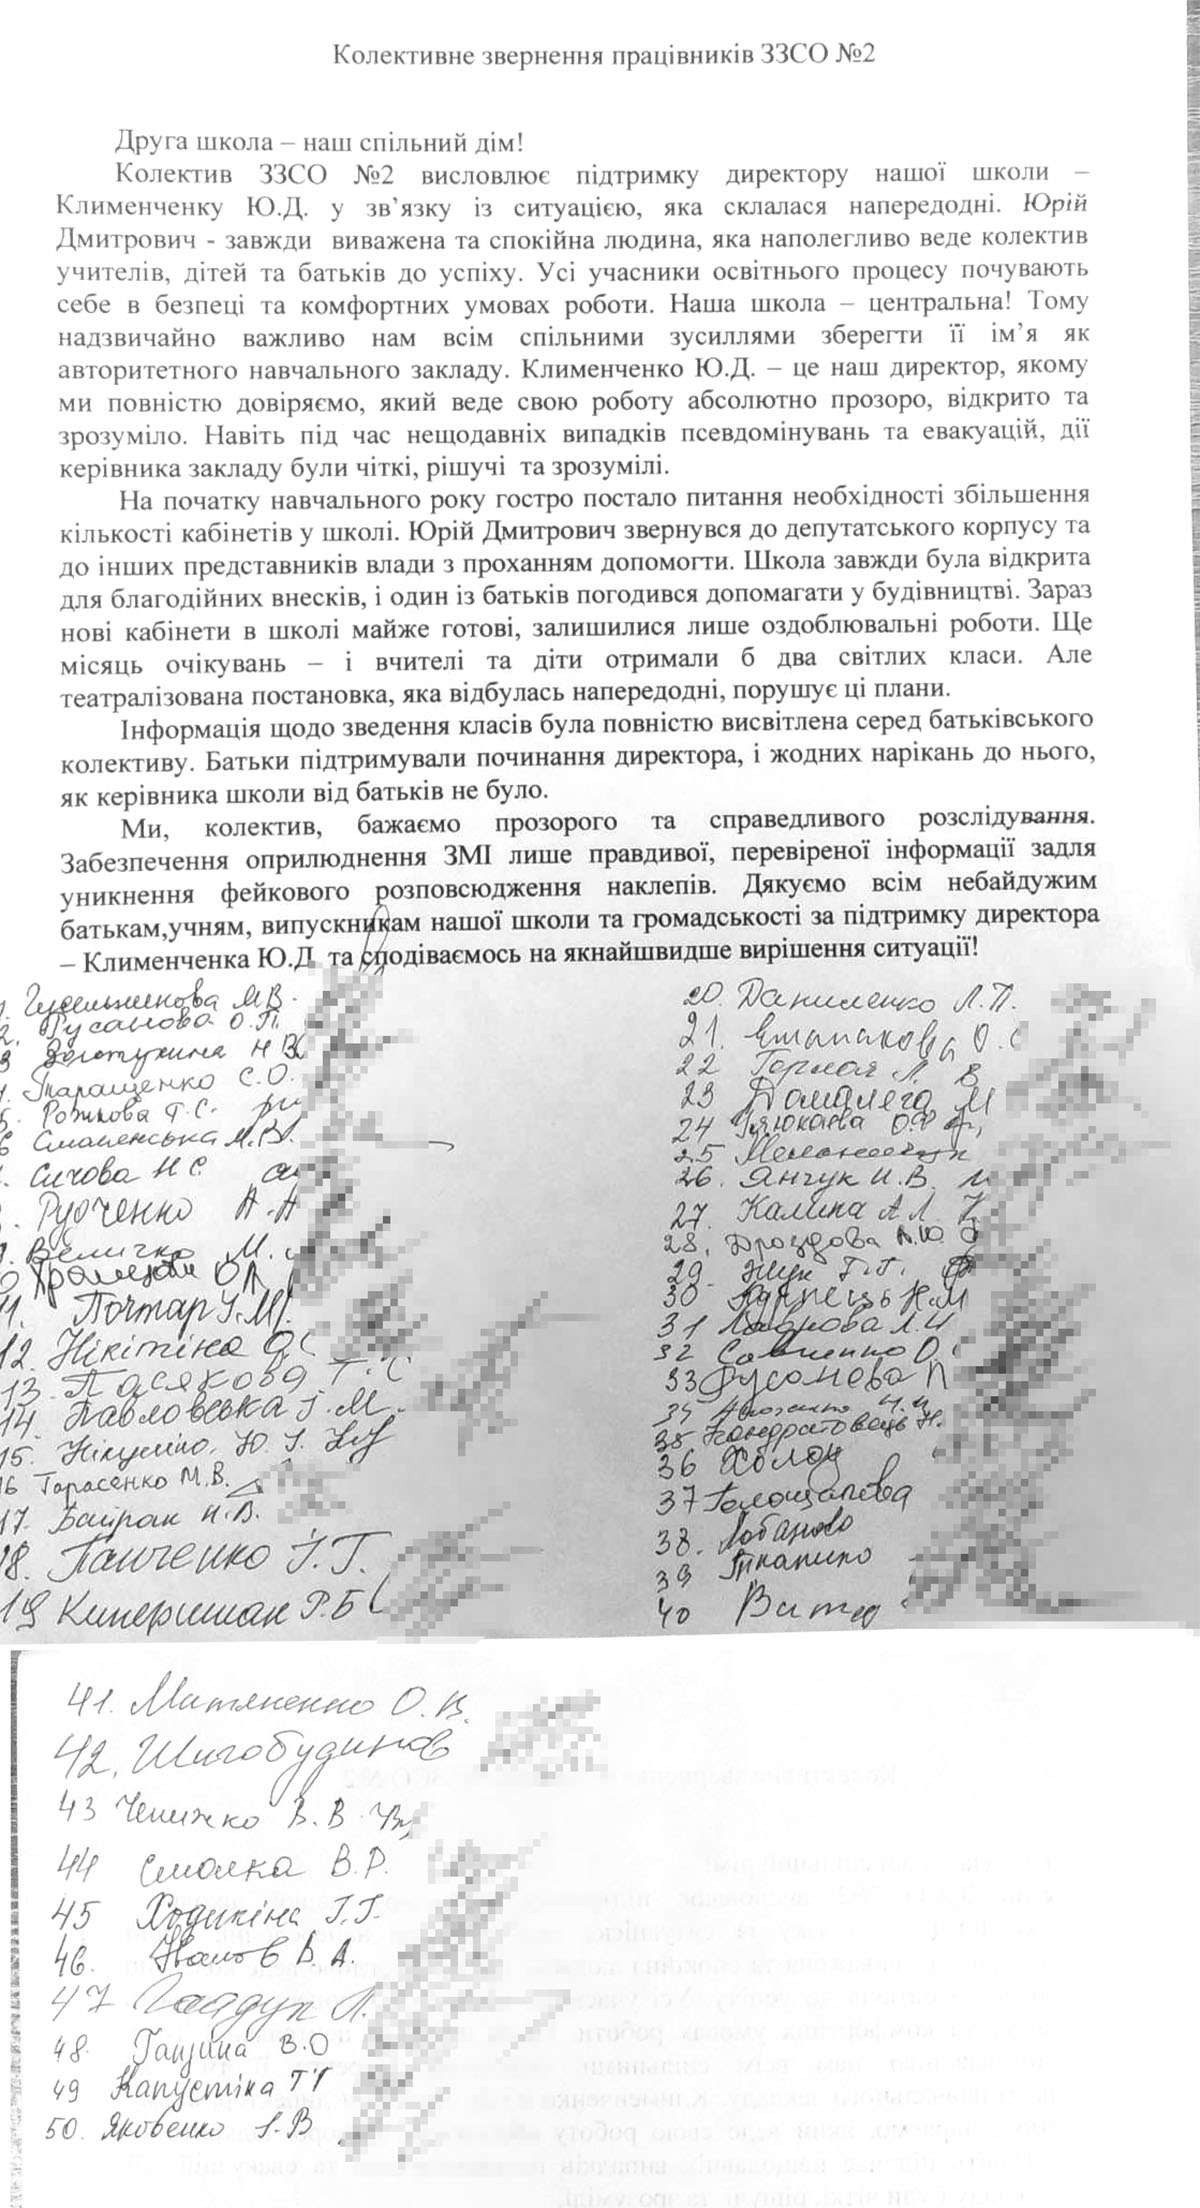 Колективне звернення працівників ЗЗСО №2
Друга школа – наш спільний дім!
Колектив ЗЗСО №2 висловлює підтримку директору нашої школи –
Клименченку Ю.Д. у зв’язку із ситуацією, яка склалася напередодні. Юрій
Дмитрович - завжди виважена та спокійна людина, яка наполегливо веде колектив
учителів, дітей та батьків до успіху. Усі учасники освітнього процесу почувають
себе в безпеці та комфортних умовах роботи. Наша школа – центральна! Тому
надзвичайно важливо нам всім спільними зусиллями зберегти її ім’я як
авторитетного навчального закладу. Клименченко Ю.Д. – це наш директор, якому
ми повністю довіряємо, який веде свою роботу абсолютно прозоро, відкрито та
зрозуміло. Навіть під час нещодавніх випадків псевдомінувань та евакуацій, дії
керівника закладу були чіткі, рішучі та зрозумілі.
На початку навчального року гостро постало питання необхідності збільшення
кількості кабінетів у школі. Юрій Дмитрович звернувся до депутатського корпусу та
до інших представників влади з проханням допомогти. Школа завжди була відкрита
для благодійних внесків, і один із батьків погодився допомагати у будівництві. Зараз
нові кабінети в школі майже готові, залишилися лише оздоблювальні роботи. Ще
місяць очікувань – і вчителі та діти отримали б два світлих класи. Але
театралізована постановка, яка відбулась напередодні, порушує ці плани.
Інформація щодо зведення класів була повністю висвітлена серед батьківського
колективу. Батьки підтримували починання директора, і жодних нарікань до нього,
як керівника школи від батьків не було.
Ми, колектив, бажаємо прозорого та справедливого розслідування.
Забезпечення оприлюднення ЗМІ лише правдивої, перевіреної інформації задля
уникнення фейкового розповсюдження наклепів. Дякуємо всім небайдужим
батькам,учням, випускникам нашої школи та громадськості за підтримку директора
– Клименченка Ю.Д. та сподіваємось на якнайшвидше вирішення ситуації!
М.В.
Русанова О.П.
Золотухина Н В
Таращенко С.О.
Рожкова Т.С.
Смоленська М.В.
Сичова Н С
Рудченко А.А
Величко М.
11. Почтар І.М.
12. Нікітіна О.С
13.
14. Павловська І.М.
15. Ю.І.
16 Тарасенко М.В.
17. Байрак Н.В.
18. Панченко І.Г.
19 Р.Б
20. Даниленко Л.П.
21. О.С
22 Горлая Л. В
23 М
24
25
26. Янчук Н.В.
27. Калина А.Л.
28. Дроздова
29. Жук Т.Г.
30 Н.М
31 Л.И
32 Савченко О.
33
34
35 Кондратовець Н.
36
37 Голощапова
38. Лобанова
39
40
41. О.В.
42.
43 Чепижко В.В
44 Смолка В.Р.
45 Ходикіна Т.Г.
46. В.А.
47 Гайдук Л.
48. Ганзина В.О
49 Капустіна ТГ
50. Яковенко І.В